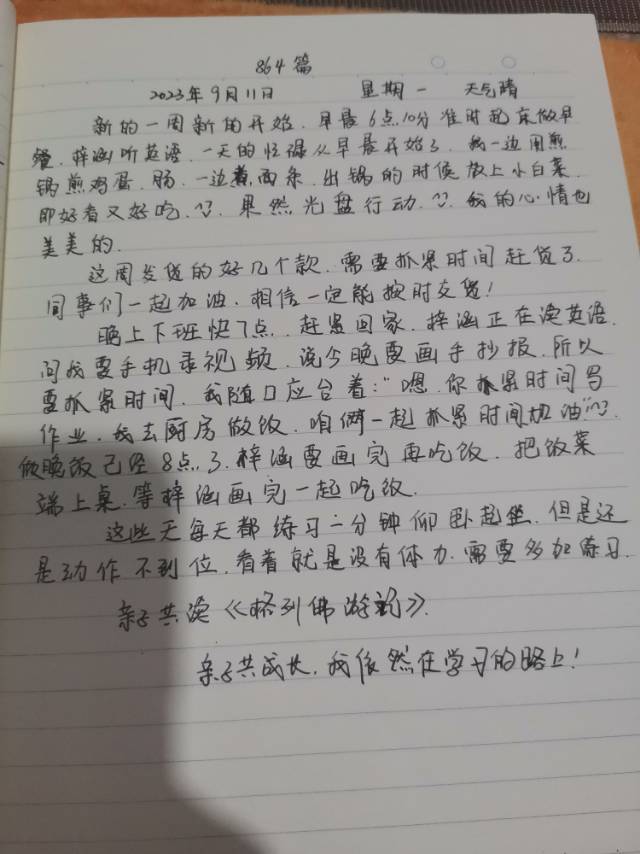 864篇
2023年9月11日 星期一 天气晴
新的一周新的开始.早晨6点10分准时起床做早
餐.梓涵听英语.一天的忙碌从早晨开始了.我一边用煎
锅煎鸡蛋.肠.一边煮面条.出锅的时候放上小白菜.
即好看又好吃.^^.果然光盘行动.^^.我的心情也
美美的.
这周发货的好几个款.需要抓紧时间赶货了.
同事们一起加油.相信一定能按时交货!
晚上下班快7点.赶紧回家.梓涵正在读英语.
问我要手机录视频.说今晚要画手抄报.所以
要抓紧时间.我随口应台着:"嗯.你抓紧时间写
作业.我去厨房做饭.咱俩一起抓紧时间加油"^^.
做晚饭已经8点了.梓涵要画完再吃饭.把饭菜
端上桌.等梓涵画完一起吃饭.
这些天每天都练习一分钟仰卧起坐.但是还
是动作不到位.看着就是没有体力.需要多加练习.
亲子共读《格列佛游记》.
亲子共成长.我依然在学习的路上!